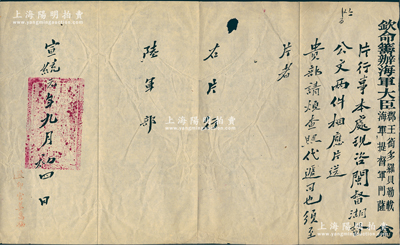 上海陽明拍賣
欽命籌辦海軍大臣
郡王銜多羅貝勒載
海軍提督軍門薩
為
片行事本處現咨閩督湖督
公文兩件相應片送
貴部請煩查照代遞可也須至
片者
右片行
陸軍部
宣統元年九月初四日